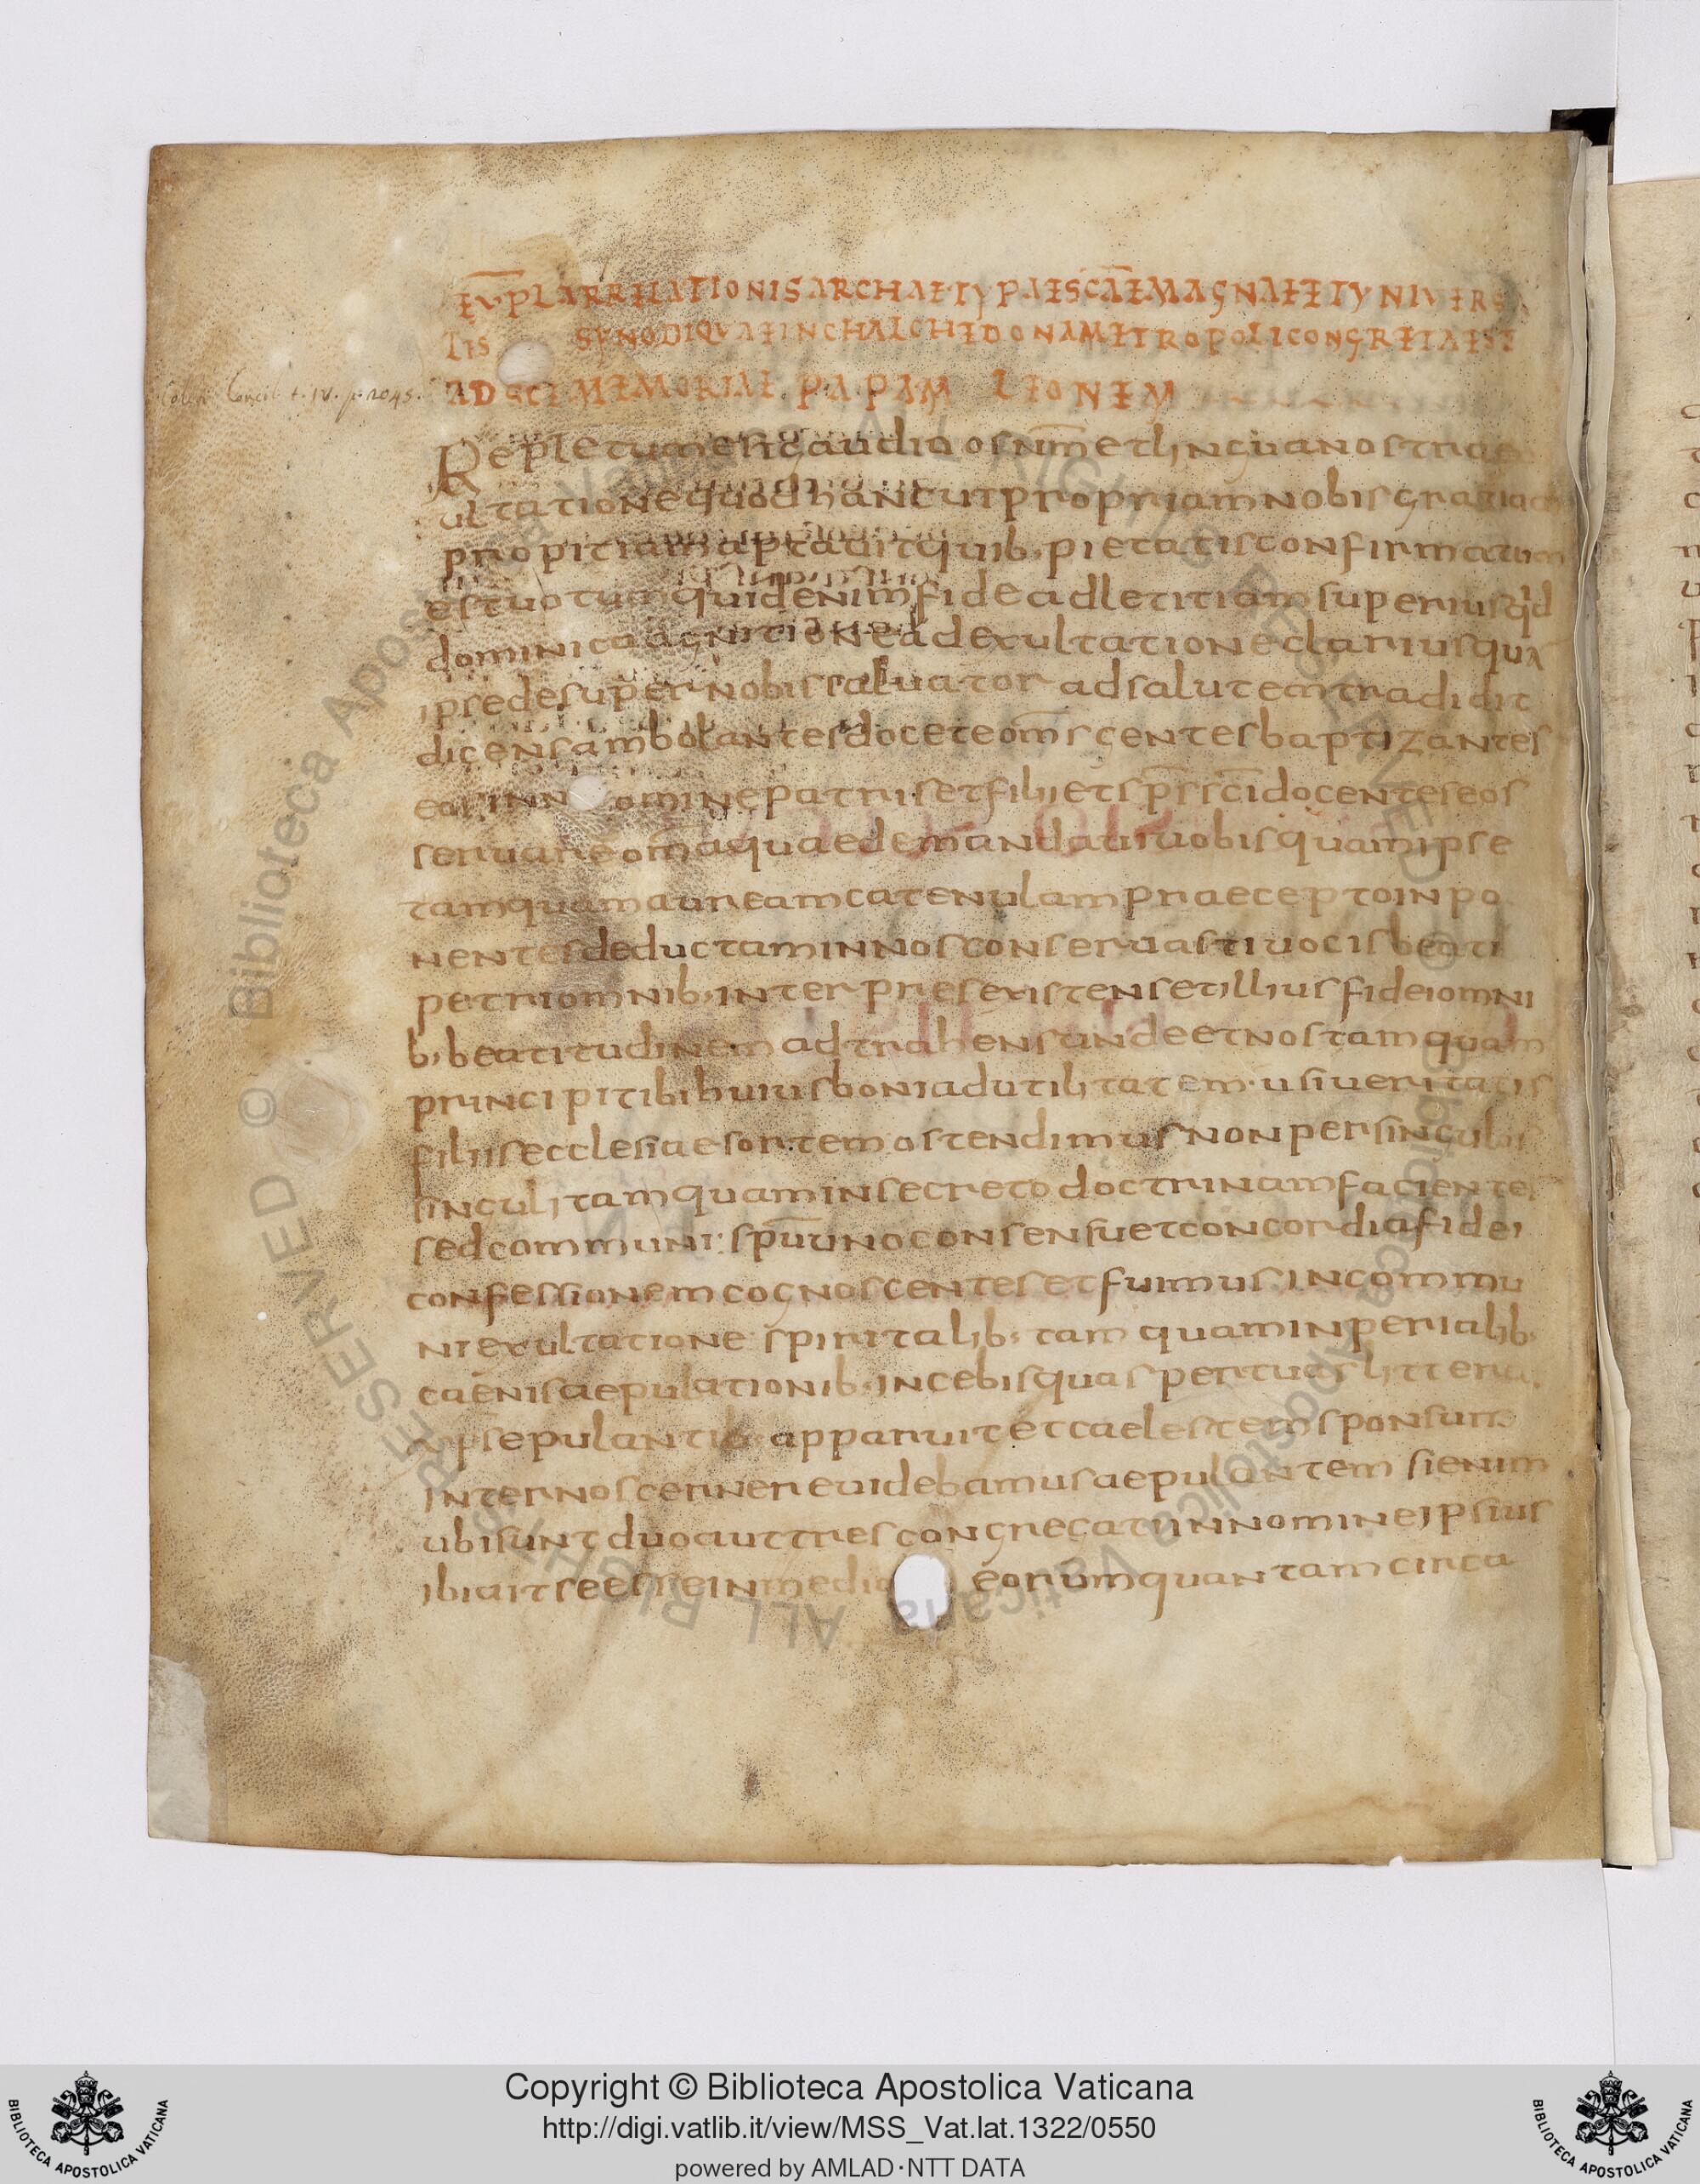 EXPLARRELATIONISARCHAETYPAESCAEMAGNAEETVNIVERSI
TIS SYNODIQVAEINCHALCHEDONAMETROPOLICONGRETAEST
ADSCEMEMORIAE PAPAM LEONEM
Repletumestgaudio osnm̄etlinguanostra
ultationequodhancutpropriamnobisgratiam
propitiamaptauitquib; pietatisconfirmatum
estuotumquidenimfideadletitiamsuperiusqd
dominicaagnitioneadexultationeclariusqua
ipsedesupernobissaluator adsalutemtradidit
dicensambolantesdoceteom̄sgentesbaptizantes
eosinn ominepatrisetfilijetsp̄ssc̄idocenteseos
seruareom̄aquaedemandauiuobisquamipse
tamquamaureamcatenulampraeceptoinpo
nentesdeductaminnosconseruastiuocisbeati
petriomnib; interpresexistensetilliusfideiomni
b; beatitudinemadtrahensundeetnostamquam
principitibihuiusboniadutilitatem usiueritatis
filiisecclesiaesortemostendimusnonpersingulos
singulitamquaminsecretodoctrinamfacientes
sedcommuni sp̄uunoconsensuetconcordiafidei
confessionemcognoscentesetfuimus incommu
niexultatione spiritalib; tam quaminperialib;
caenisaepulationib; incebisquaspertuaslitteras
xp̄sepulantib; apparuitetcaelestemsponsum
internoscernereuidebamusaepulantem sienim
ubisuntduoauttrescongregatiinnomineipsius
ibiaitseesseinmedio eorumquantamcirca
Copyright © Biblioteca Apostolica Vaticana
http://digi.vatlib.it/view/MSS_Vat.lat.1322/0550
powered by AMLAD·NTT DATA
BIBLIOTECA APOSTOLICA VATICANA
BIBLIOTECA APOSTOLICA VATICANA